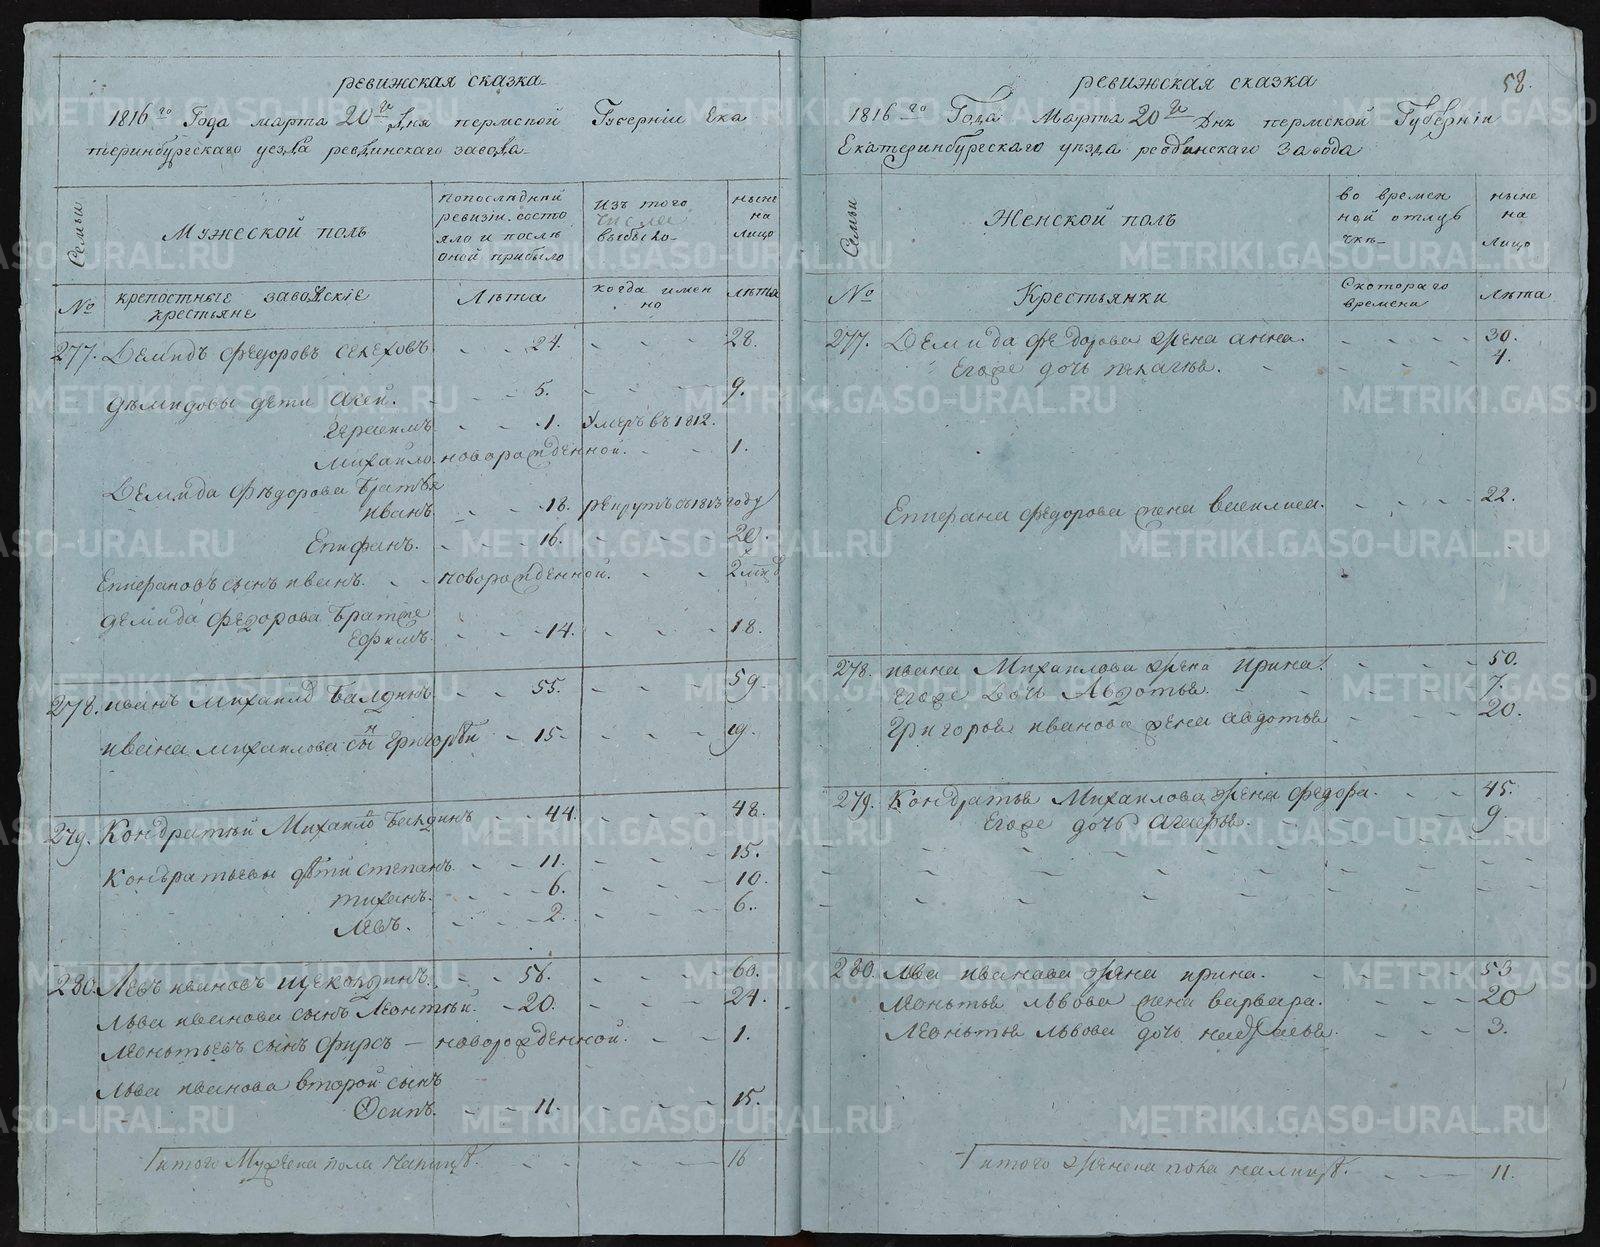 ревижская сказка
1816го Года марта 20го Дня пермской Губернии Ека
теринбургскаго уезда ревдинскаго завода
Семьи
Мужеской полъ
попоследней
ревизіи состо
яло и после
оной прибыло
изъ того
числа
выбыло
ныне
на
лицо
№
крепостные заводскіе
крестьяне
Лѣта
когда имен
но
лѣта
277. Демидъ федоровъ 24. 28.
дѣмидовы дети 5. 9.
Герасимъ 1. Умеръ въ 1812.
михайло новорожденной. 1.
Демида Фѣдорова братья
иванъ 18. рекрутъ въ 1813 году
Епифанъ. 16. 20.
Епифановъ сынъ иванъ. новорожденной. 2 мѣс
демида федорова братъ же
Ефимъ 14. 18.
278. иванъ михайло Балдинъ 55. 59.
ивана михаилова сынъ григорей 15. 19.
279. Кондратѣй Михайло Балдинъ 44. 48.
Кондратьевы дѣти степанъ. 11. 15.
тиханъ. 6. 10.
левъ. 2. 6.
280. Левъ ивановъ щеколдинъ. 56. 60.
Льва иванова сынъ Леонтѣй. 20. 24.
леонтьевъ сынъ фирсъ — новорожденной. 1.
Льва иванова второй сынъ
Осипъ. 11. 15.
итого Мужеска пола налицо. 16
58.
ревижская сказка
1816го Года Марта 20го Дня пермской Губерніи
Екатеринбургскаго уѣзда ревдинскаго Завода
Семьи
Женской полъ
во времен
ной отлу
чкѣ
ныне
на
лицо
№
Крестьянки
Скотораго
времени
лѣта
277. Демида федорова жена анна. 30.
Егоже дочь пелагея. 4.
Епифана федорова жена василиса. 22.
278. ивана Михаилова жена ирина. 50.
Егоже Дочь Авдотья. 7.
Григорья иванова жена авдотья 20.
279. Кондратья Михаилова жена федора. 45.
Егоже дочь 9.
280. Льва иванова жена ирина. 53
леонтья львова жена варвара. 20
леонтья львова дочь 3.
итого женска пола налицо. 11.
METRIKI.GASO-URAL.RU